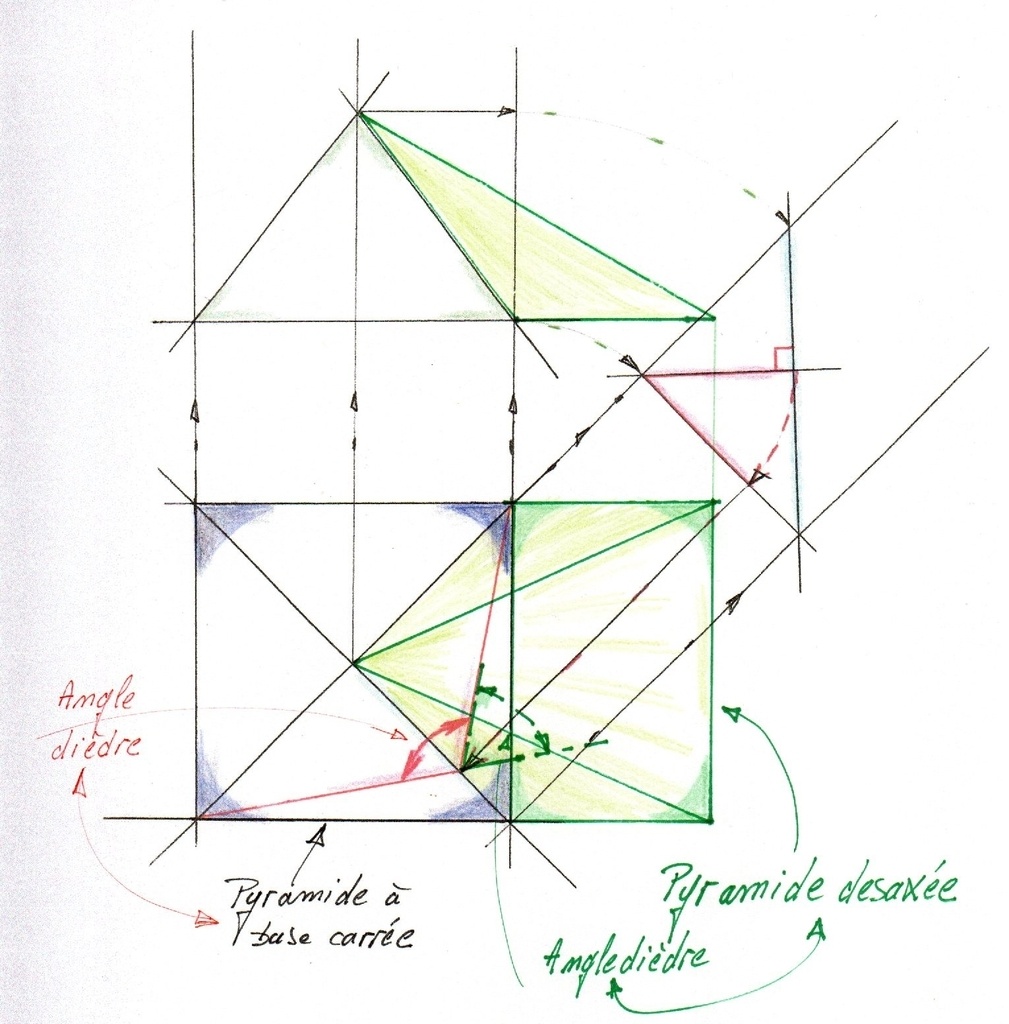 Angle
dièdre
Pyramide à
base carrée
Pyramide desaxée
Angle dièdre